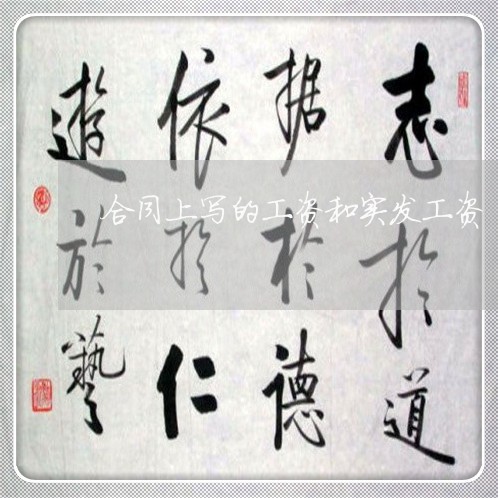 志於道
据於德
依於仁
遊於藝
合同上写的工资和实发工资